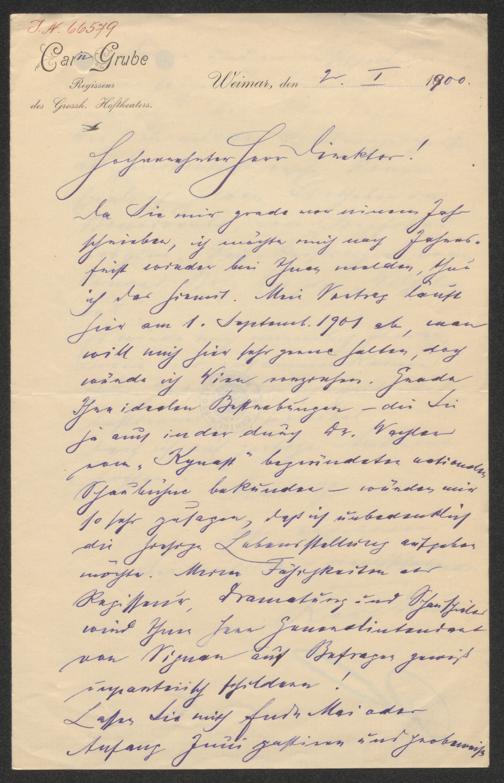 J. N. 66579
Carl Grube
Regisseur
des Grossh. Hoftheaters.
Weimar, den 2. I 1900.
Hochverehrter Herr Direktor!
Da Sie mir grade vor einem Jahr
schrieben, ich möchte mich nach Jahres-
frist wieder bei Ihnen melden, thue
ich das hiermit. Mein Vertrag läuft
hier am 1. Septemb. 1901 ab, man
will mich hier sehr gerne halten, doch
würde ich Wien vorziehen. Grade
Ihre idealen Bestrebungen – die Sie
ja auch in der durch Dr. Wachler
vom „Kynast“ begründeten nationalen
Schaubühne bekunden – würden mir
so sehr zusagen, daß ich unbedenklich
die hiesige Lebensstellung aufgeben
möchte. Meine Fähigkeiten als
Regisseur, Dramaturg und Schauspieler
wird Ihnen Herr Generalintendant
von Vignau auf Befragen gewiß
unparteiisch schildern!
Lassen Sie mich Ende Mai oder
Anfang Juni gastieren und probeweise